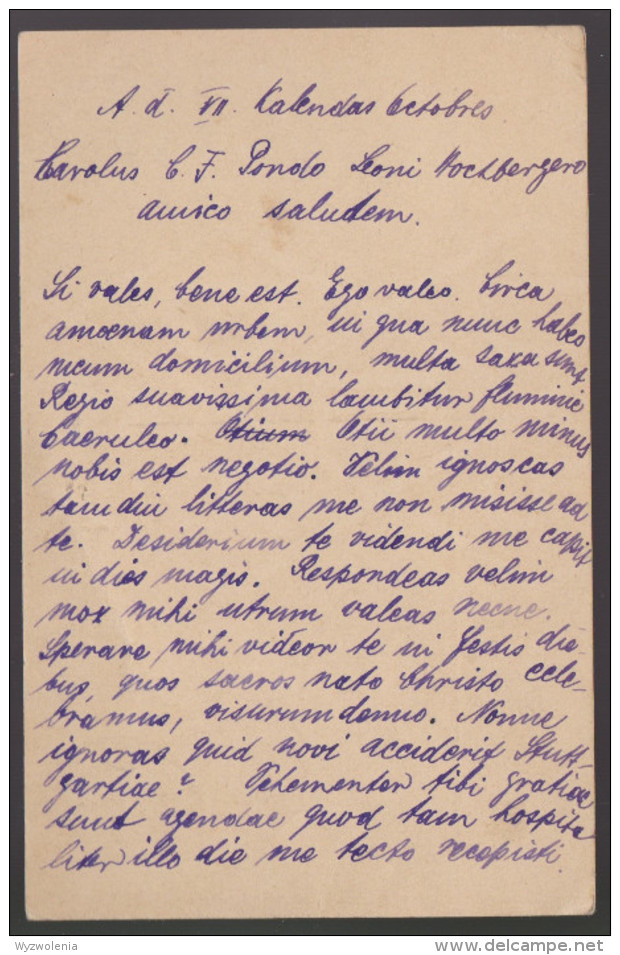 A. d. VII. Kalendas Octobres
Carolus C. F. Pondo Leoni Hochbergero
amico salutem.
Si vales, bene est. Ego valeo. Circa
amoenam urbem, in qua nunc habeo
meum domicilium, multa saxa sunt.
Regio suavissima lambitur flumine
Caeruleo. Otium Otii multo minus
nobis est negotio. Velim ignoscas
tam diu litteras me non misisse ad
te. Desiderium te videndi me capit
in dies magis. Respondeas velim
mox mihi utrum valeas necne.
Sperare mihi videor te in festis die-
bus, quos sacros nato Christo cele-
bramus, visurum denuo. Nonne
ignoras quid novi acciderit Stutt-
gartiae? Vehementer tibi gratiae
sunt agendae quod tam hospita-
liter illo die me tecto recepisti.
Wyzwolenia
www.delcampe.net